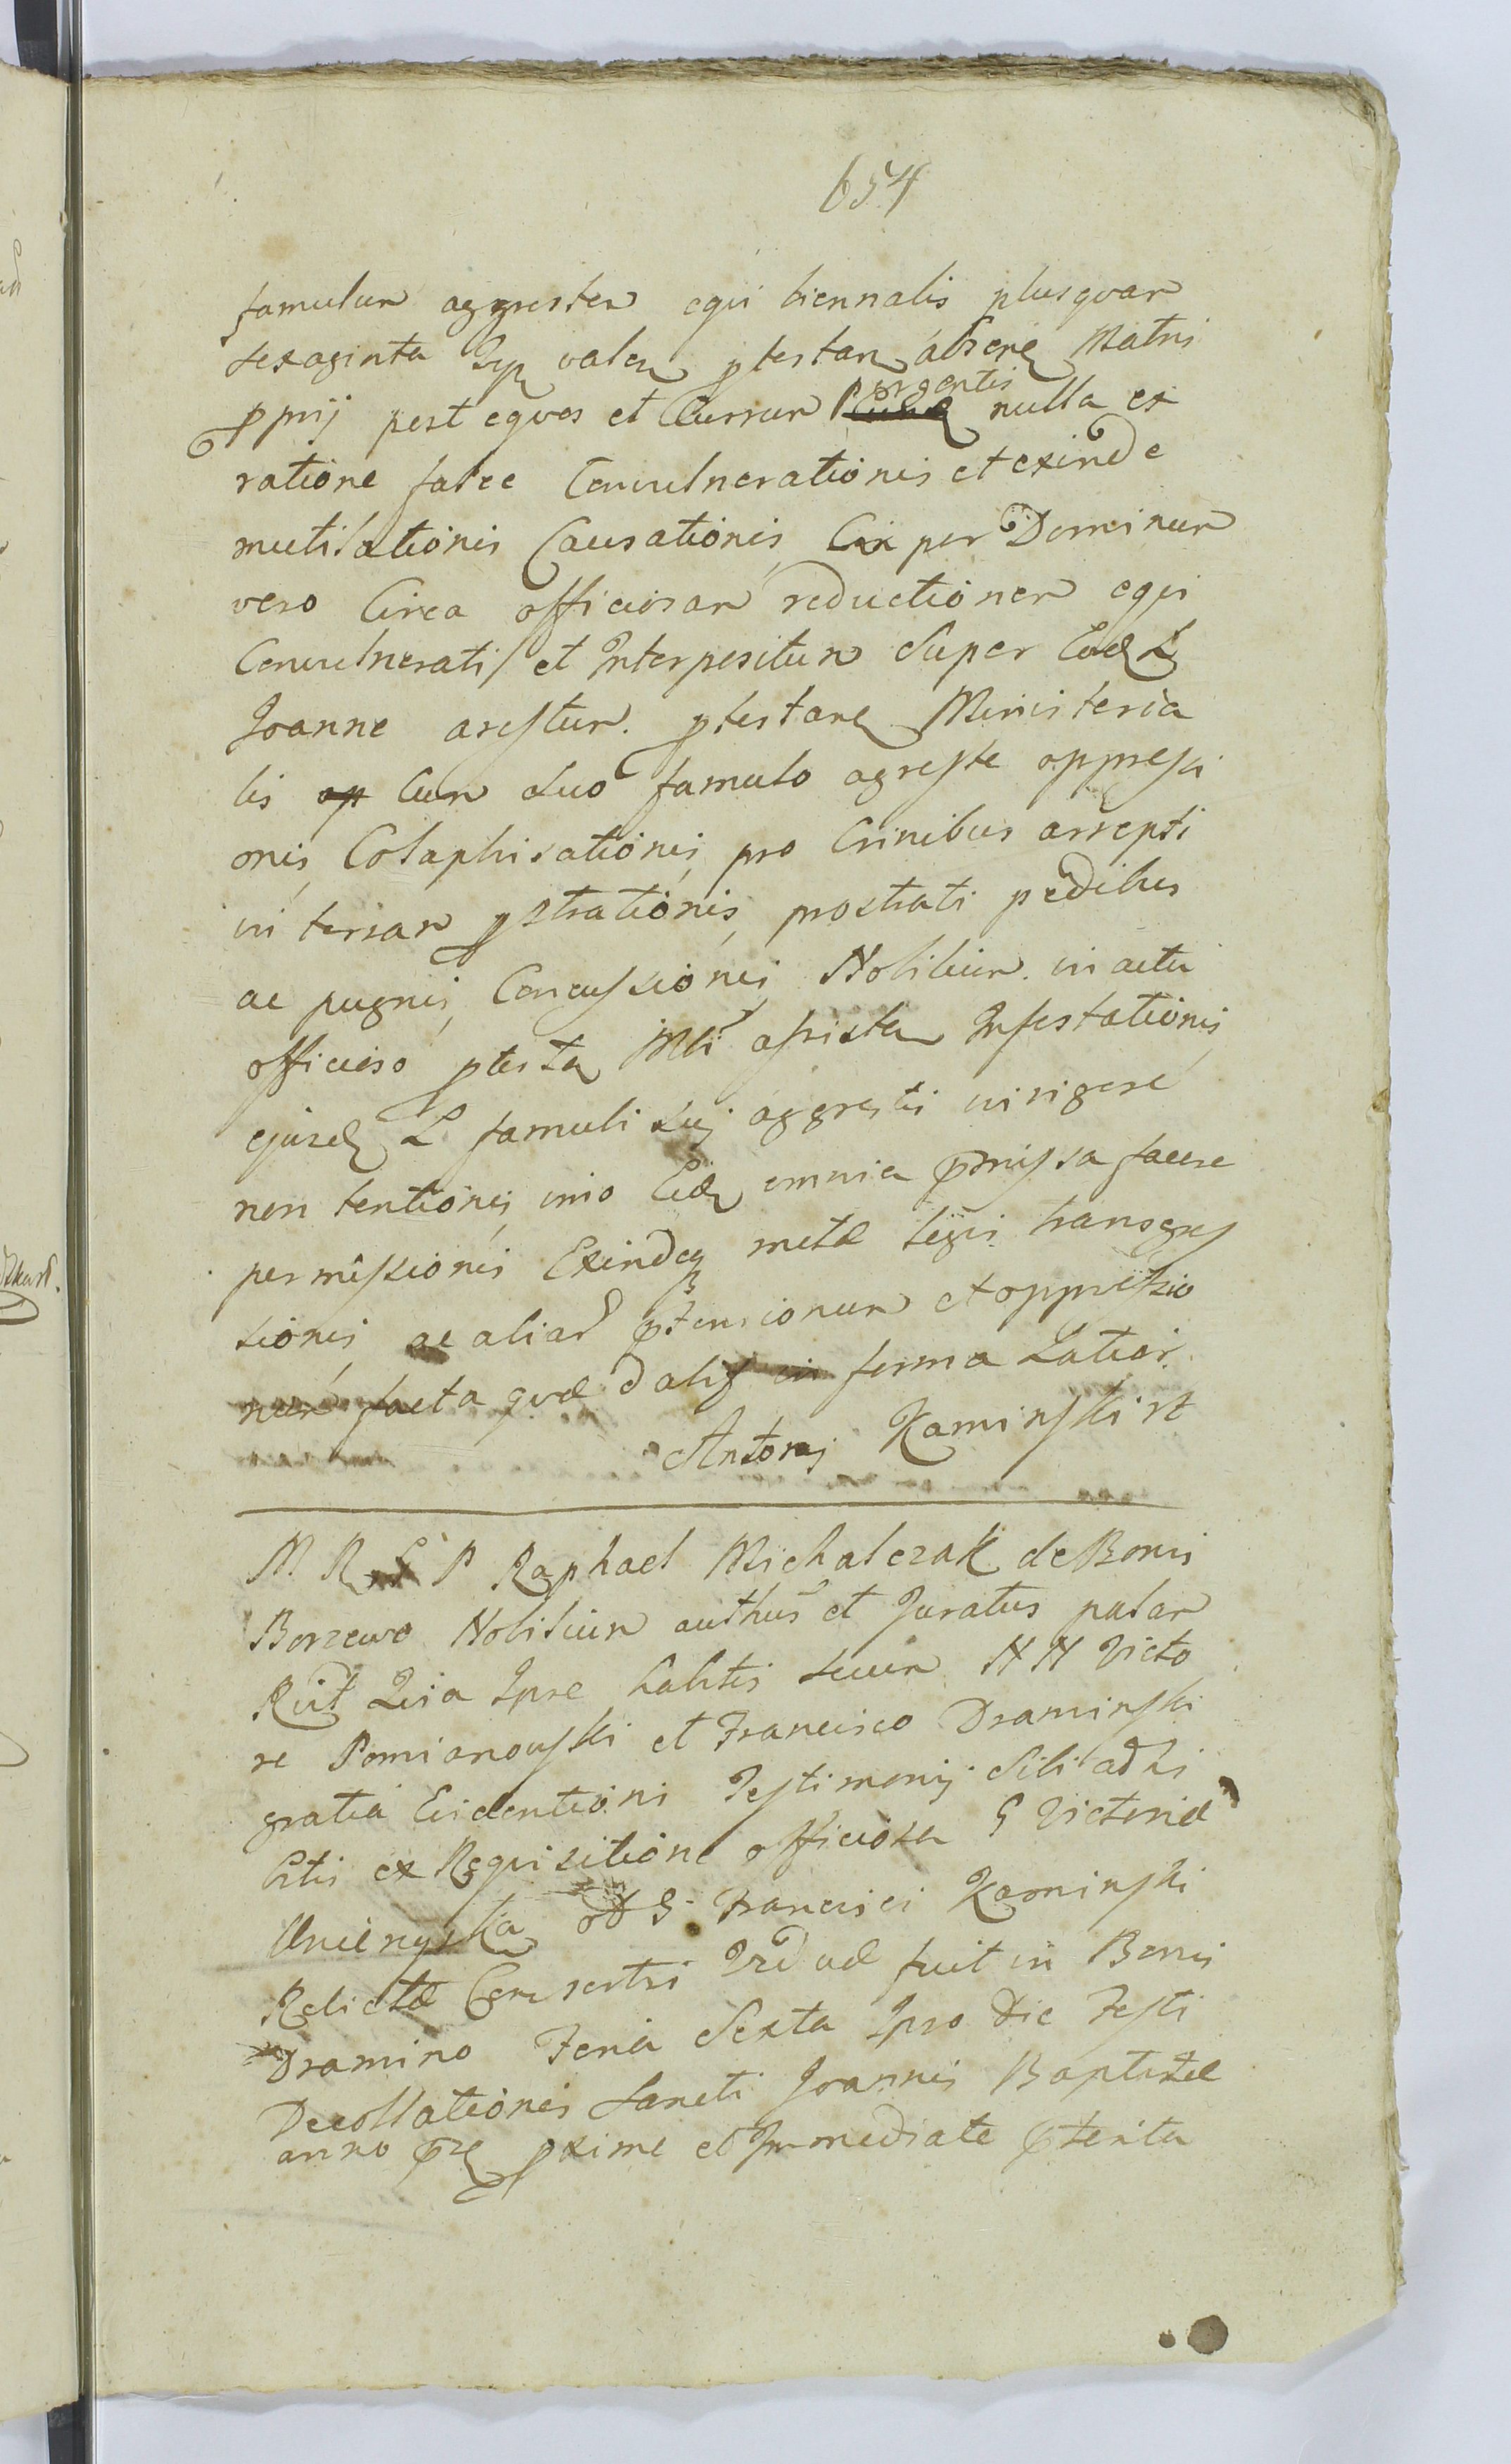 654
famulum aggrestem equi biennalis plusquam
sexaginta valen ptestan absene Matris
pprij post equos et Currum porgentis nulla ex
ratione falce Convulnerationis et exinde
mutilationis Causationis, per Dominum
vero Circa officiosam reductionem equi
Convulnerati et Interpositum Super Eod L
Joanne arestum. ptestane Ministeria
lis op Cum Suo famulo agreste oppressi
onis, Colaphisationis, pro Crinibus arrepti
in terram pstrationis, prostrati pedibus
ac pugnis, Concussionis, Nobilium in actu
officioso ptesta assisten Infestationis,
ejusd L famuli sui aggrestis in rigore
non tentionis, imo Eid omnia pmissa facere
permissionis Exindeq metæ legis transgres
sionis, ac aliar ptensionum et oppressio
num facta quæ d aliis in forma Latior.
Antoni Kaminski
M R L P Raphael Michalczak de Bonis
Borzewo Nobilium authus et Juratus palam
Rūt Quia Ipse habitis secum N N Victo
re Pomianowski et Francisco Draminski
gratia Evidentioris Testimonij Sibi adhi
bitis ex Requisitione officiosa G Victoriæ
olῑ G Francisci Kaminski
Relictæ Consortis Viduæ fuit in Bonis
Dramino Feria Sexta Ipso Die Festi
Decollationis Sancti Joannis Baptistæ
anno pñ pxime et Immediate pterita